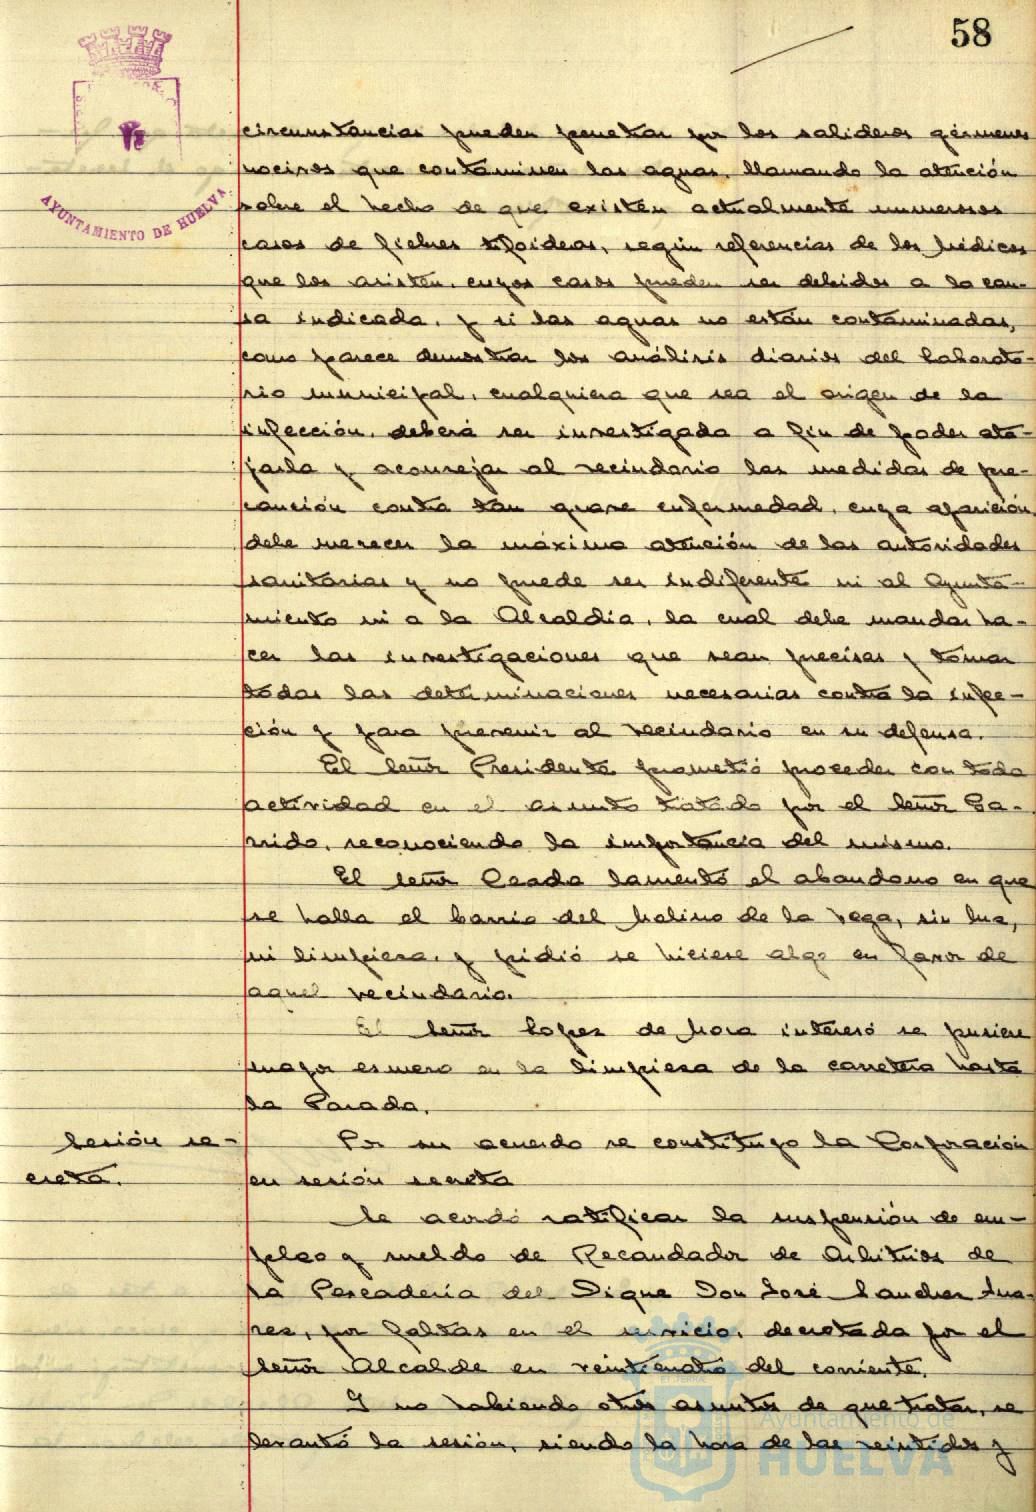 58
AYUNTAMIENTO DE HUELVA
circunstancias pueden penetrar por los salideros gérmenes
nocivos que contaminen las aguas, llamando la atención
sobre el hecho de que existen actualmente numerosos
casos de fiebres tifoideas, según referencias de los Médicos
que los asisten, cuyos casos pueden ser debidos a la cau-
sa indicada, y si las aguas no están contaminadas,
como parece demostrar los análisis diarios del Laborato-
rio municipal, cualquiera que sea el origen de la
infección, deberá ser investigada a fin de poder ata-
jarla y aconsejar al vecindario las medidas de pre-
caución contra tan grave enfermedad, cuya aparición
debe merecer la máxima atención de las autoridades
sanitarias y no puede ser indiferente ni al Ayunta-
miento ni a la Alcaldía, la cual debe mandar ha-
cer las investigaciones que sean precisas y tomar
todas las determinaciones necesarias contra la infec-
ción y para prevenir al vecindario en su defensa.
El Señor Presidente prometió proceder con toda
actividad en el asunto tratado por el Señor Ga-
rrido, reconociendo la importancia del mismo.
El señor Ceada lamentó el abandono en que
se halla el barrio del Molino de la Vega, sin luz,
ni limpieza, y pidió se hiciese algo en favor de
aquel vecindario.
El Señor López de Mora interesó se pusiese
mayor esmero en la limpieza de la carretera hasta
la Parada.
Sesión se-
creta.
Por su acuerdo se constituyo la Corporación
en sesión secreta
Se acordó ratificar la suspensión de em-
pleo y sueldo de Recaudador de Arbitrios de
la Pescadería del Dique Don José Sanchez Sua-
rez, por faltas en el servicio, decretada por el
Señor Alcalde en veinticuatro del corriente.
Y no habiendo otros asuntos de que tratar, se
levantó la sesión, siendo la hora de las veintidos y
Ayuntamiento de
HUELVA